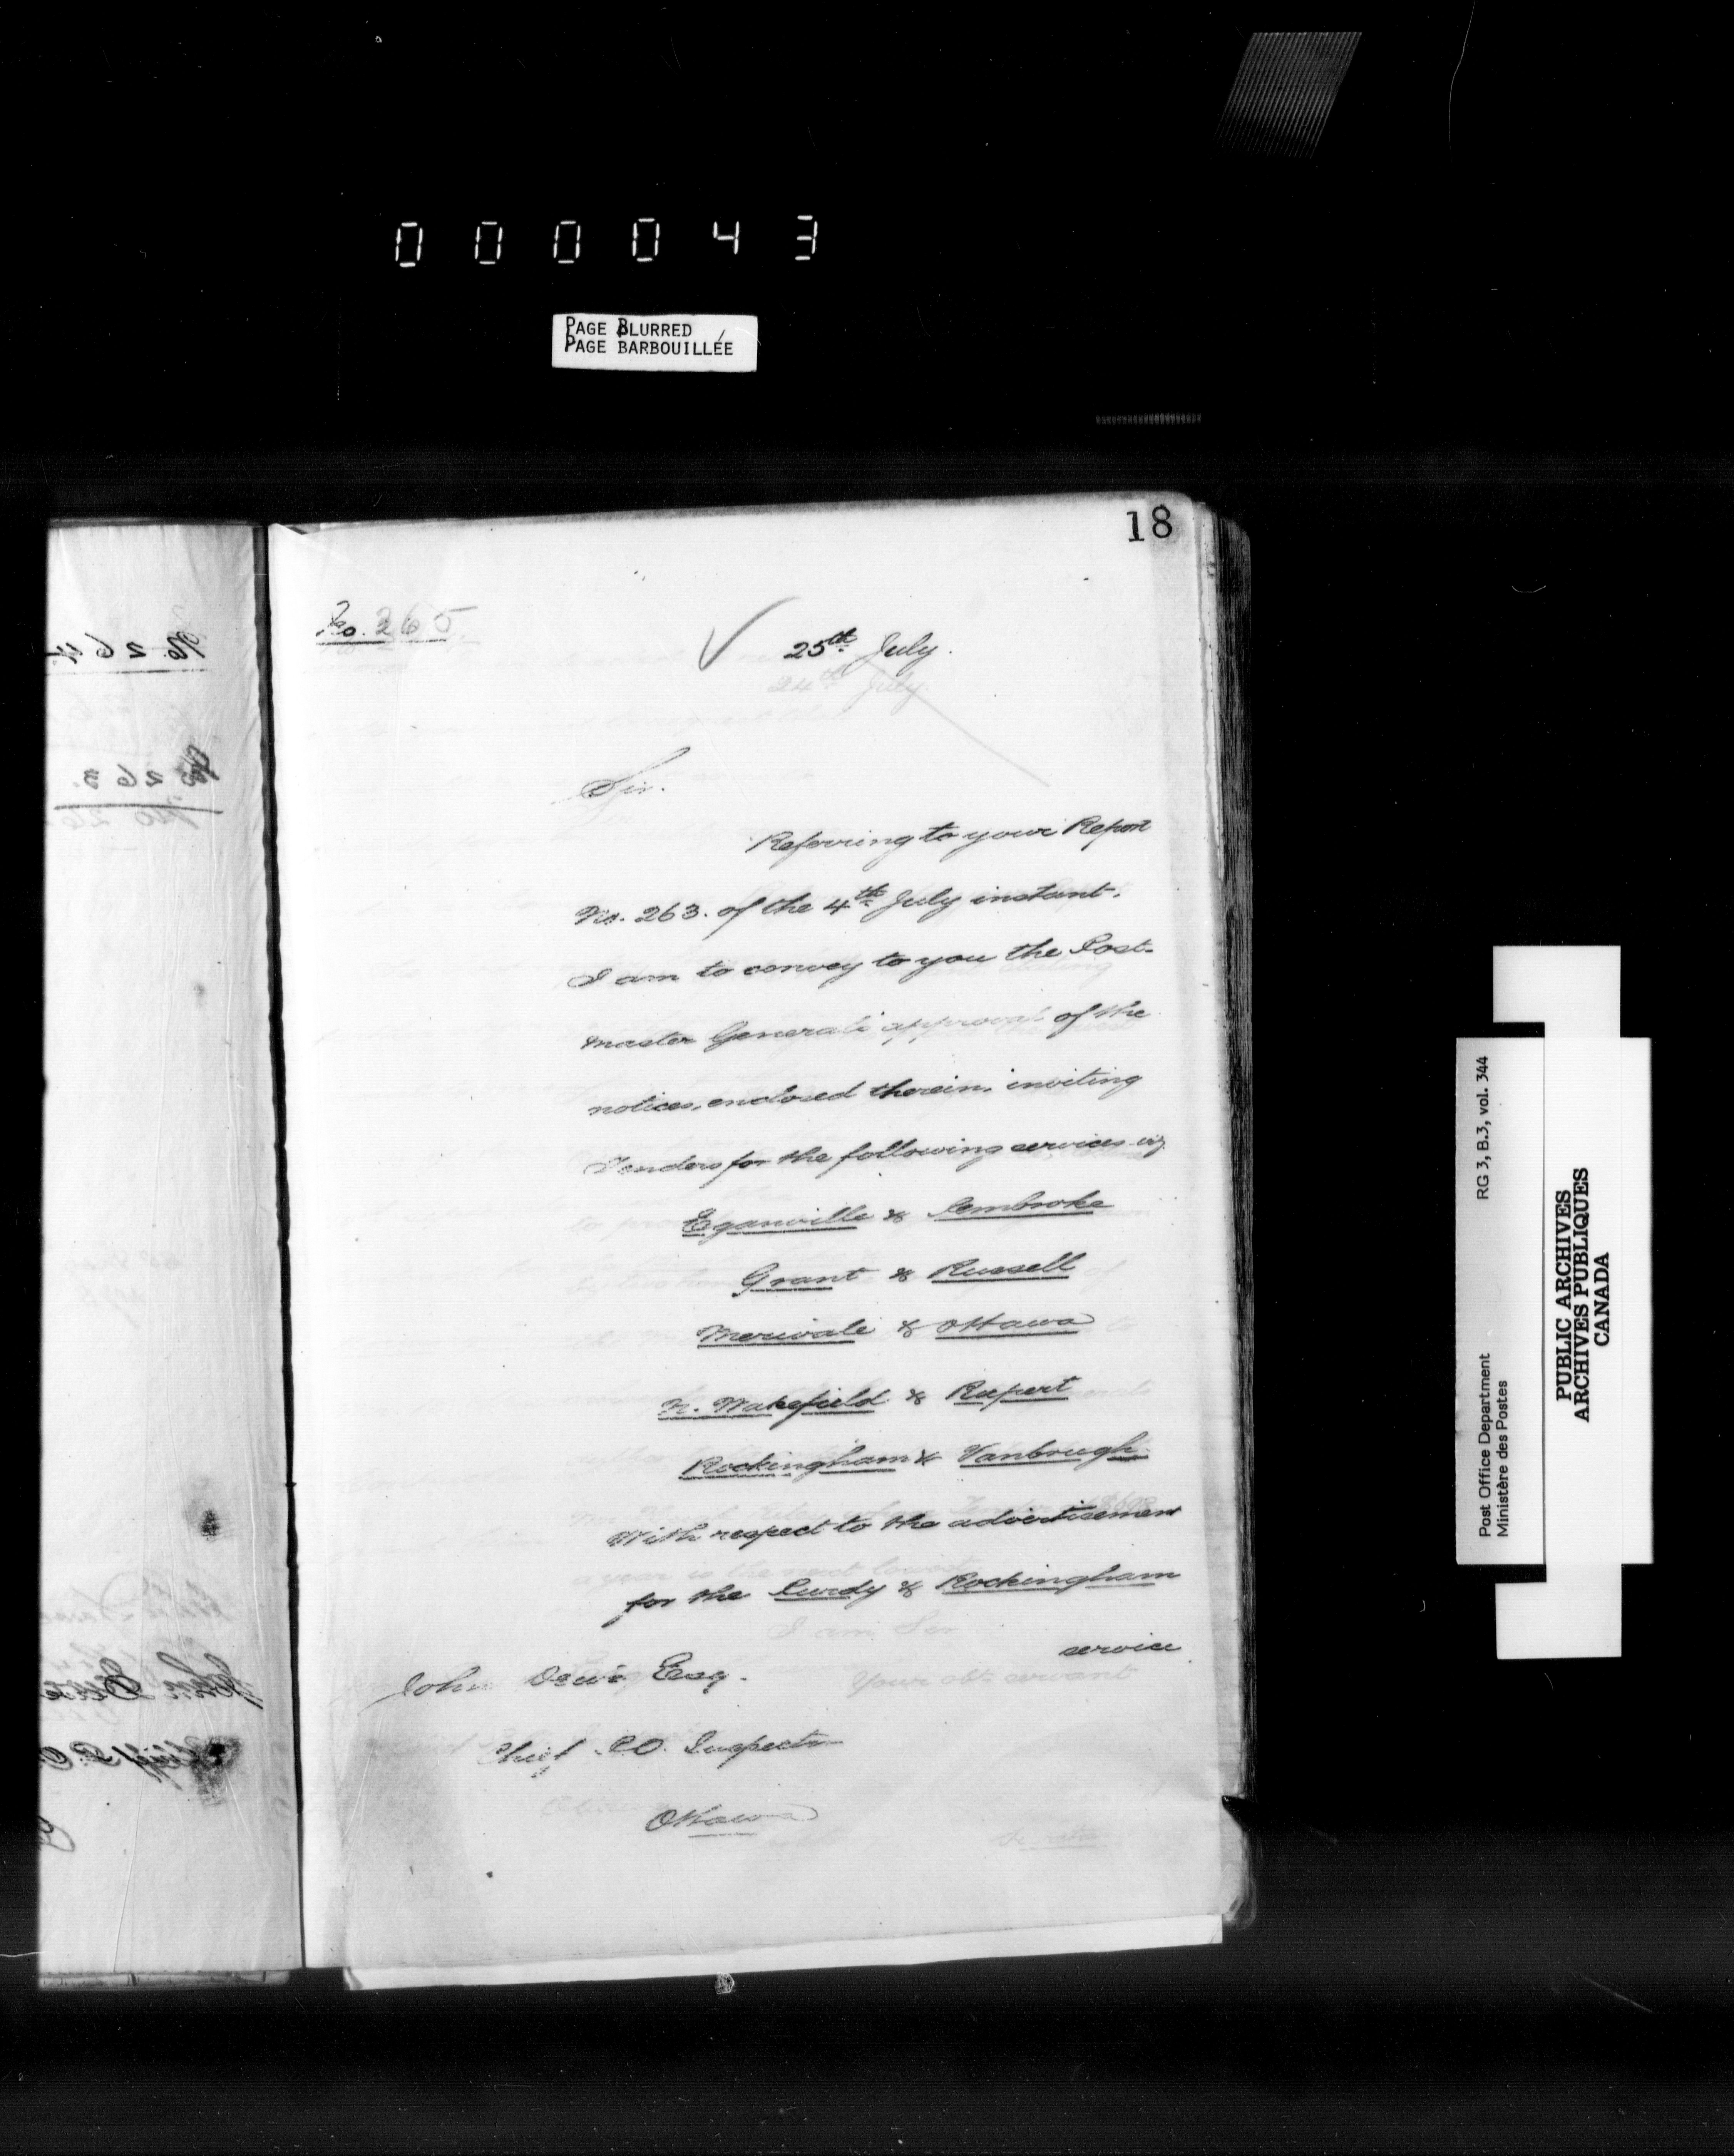 000043
PAGE BLURRED
PAGE BARBOUILLÉE
18
No. 265.
25th July.
24th July.
Sir.
Referring to your Report
No. 263. of the 4th July instant.
I am to convey to you the Post-
master General's approval of the
notices, enclosed therein, inviting
Tenders for the following services viz
Eganville & Pembroke
Grant & Russell
Merivale & Ottawa
N. Wakefield & Rupert
Rockingham & Vanbrugh
With respect to the advertisement
for the Purdy & Rockingham
service
John Dewe Esq.
Chief P.O. Inspector
Ottawa
a year is the next lowest
I am Sir
Your obt servant
No. 264
No. 265.
Post Office Department
Ministère des Postes
RG 3, B.3, vol. 344
PUBLIC ARCHIVES
ARCHIVES PUBLIQUES
CANADA